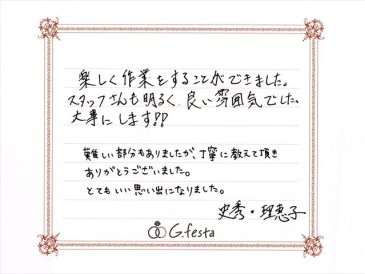 楽しく作業をすることができました。
スタッフさんも明るく、良い雰囲気でした。
大事にします!!
難しい部分もありましたが、丁寧に教えて頂き
ありがとうございました。
とてもいい思い出になりました。
史秀・理恵子
G.festa